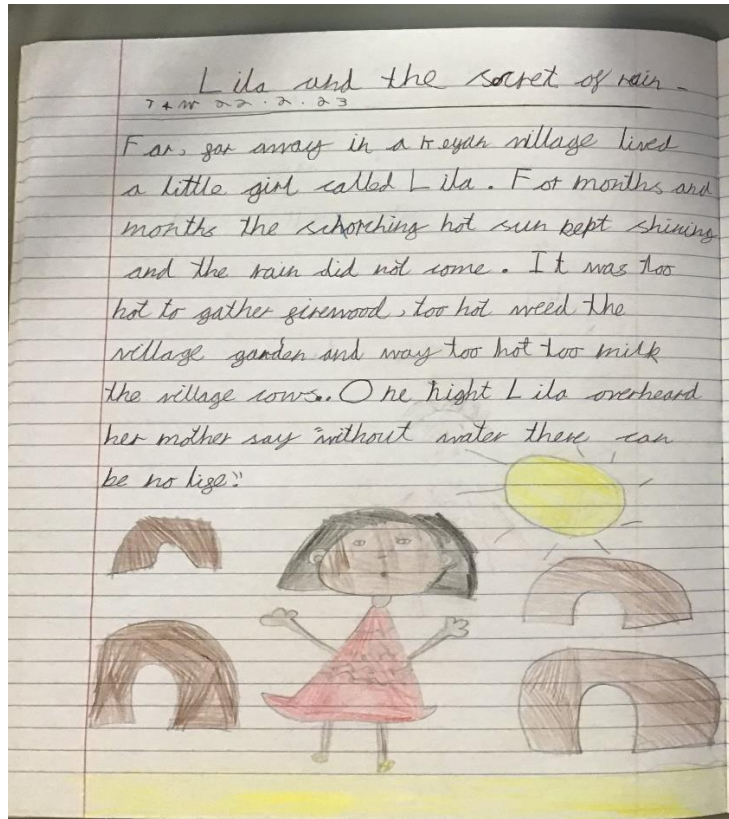 Lila and the secret of rain -
22.2.23
Far, far away in a Keyan village lived
a little girl called Lila. For months and
months the schorching hot sun kept shining
and the rain did not come. It was too
hot to gather firewood, too hot weed the
village garden and way too hot too milk
the village cows.. One night Lila overheard
her mother say "without water there can
be no life."